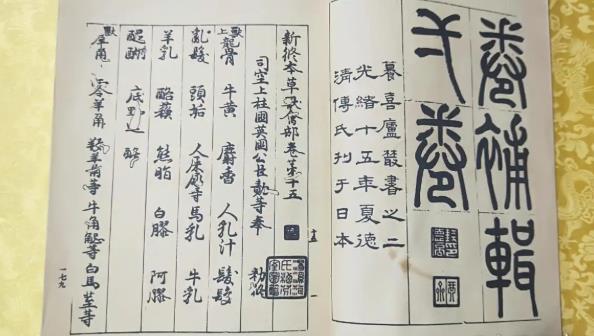 卷補輯
弌卷
籑喜廬叢書之二
光緒十五年夏德
清傅氏刊于日本
新修本草獸禽部卷第十五
司空上柱國英國公臣勣等奉 勅修
獸上 龍骨 牛黃 麝香 人乳汁 髮髲
亂髮 頭垢 人屎等 馬乳 牛乳
羊乳 酪蘇 熊脂 白膠 阿膠
醍醐 底野迦 酪
獸 犀角 零羊角 羖羊角等 牛角䚡等 白馬莖等
十五
一
一七九